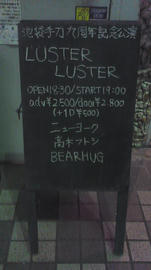 池袋手刀九周年記念公演
LUSTER
LUSTER
OPEN18:30/START19:00
adv¥2500/door¥2.800
(+1D¥500)
ニューヨーク
高木フトシ
BEARHUG